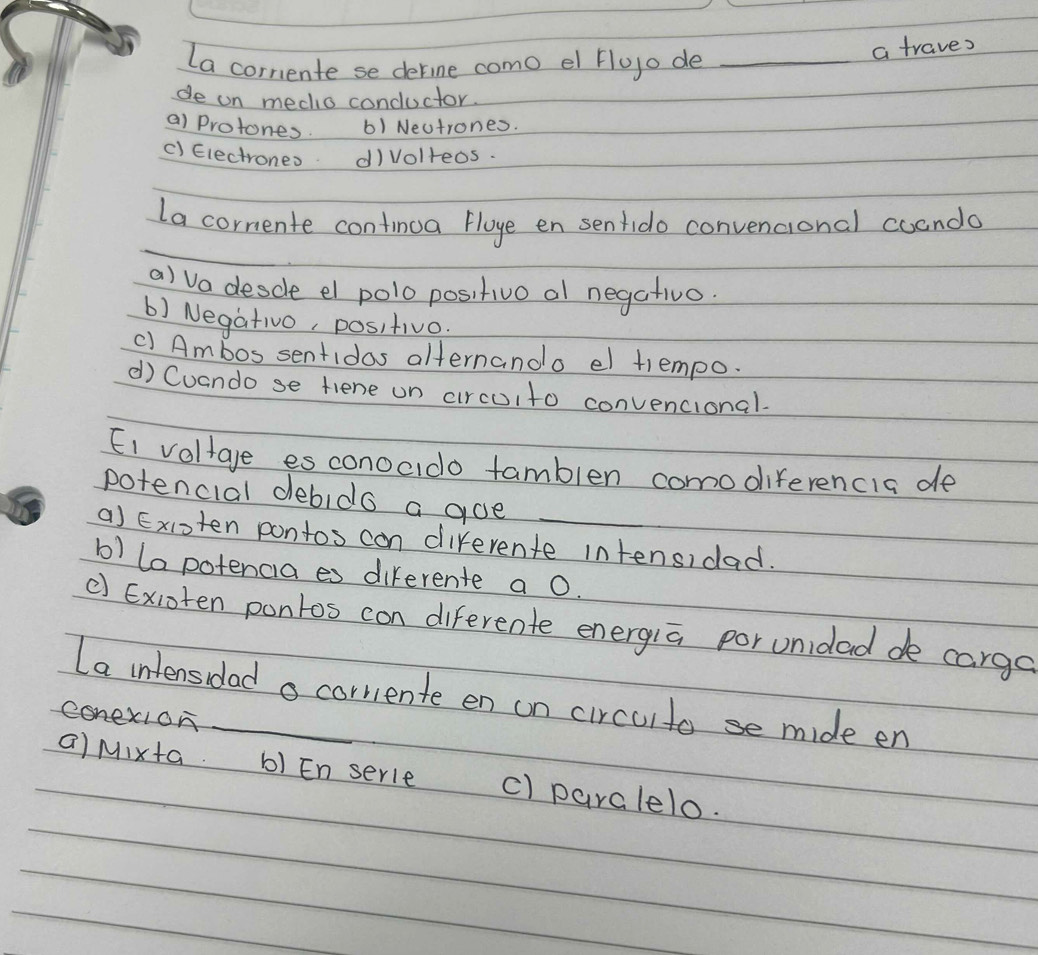 La corriente se define como el flujo de ______ a traves
de un medio conductor.
a) Protones. b) Neutrones.
c) Electrones. d) Volteos.
La corriente continua fluye en sentido convencional cuando
______
a) Va desde el polo positivo al negativo.
b) Negativo, positivo.
c) Ambos sentidos alternando el tiempo.
d) Cuando se tiene un circuito convencional.
El voltaje es conocido tambien como diferencia de
potencial debido a que ______
a) Existen puntos con diferente intensidad.
b) La potencia es diferente a 0.
c) Existen puntos con diferente energía por unidad de carga
La intensidad o corriente en un circuito se mide en
conexión ______
a) Mixta. b) En serie c) paralelo.